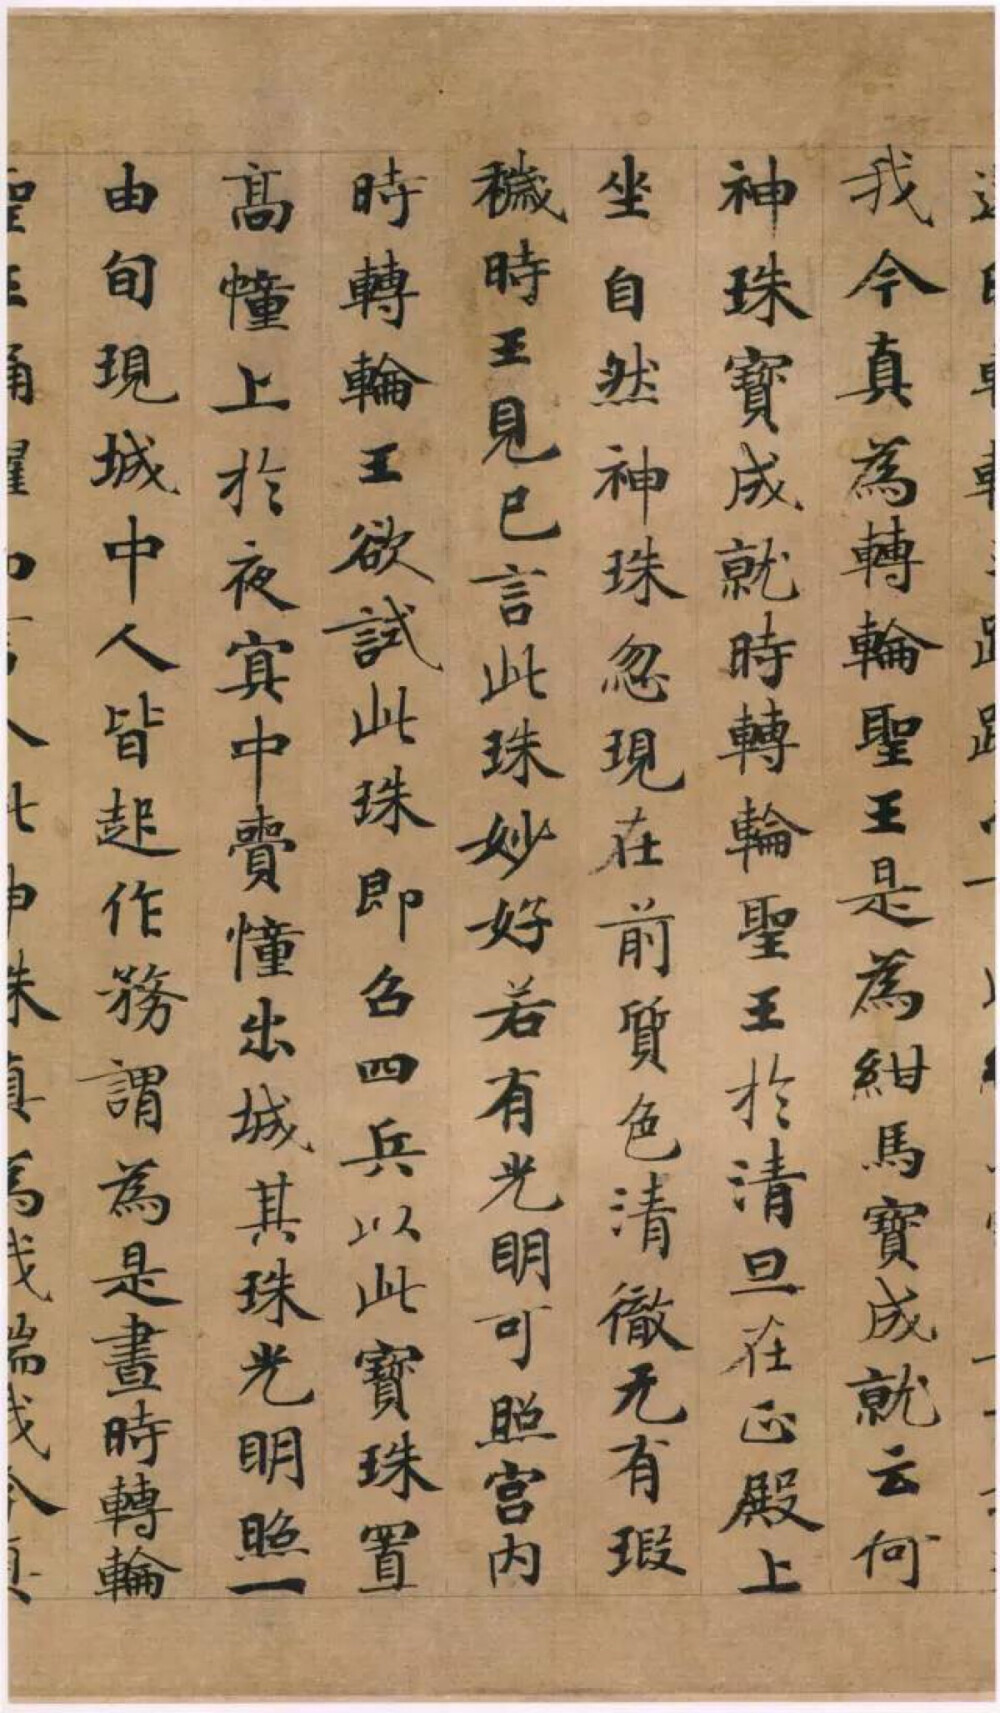 我今真為轉輪聖王是為紺馬寶成就云何
神珠寶成就時轉輪聖王於清旦在正殿上
坐自然神珠忽現在前質色清徹无有瑕
穢時王見已言此珠妙好若有光明可照宮內
時轉輪王欲試此珠即召四兵以此寶珠置
高幢上於夜冥中賷幢出城其珠光明照一
由旬現城中人皆起作務謂為是晝時轉輪
聖王踊躍而言今此神珠真為我瑞我今真